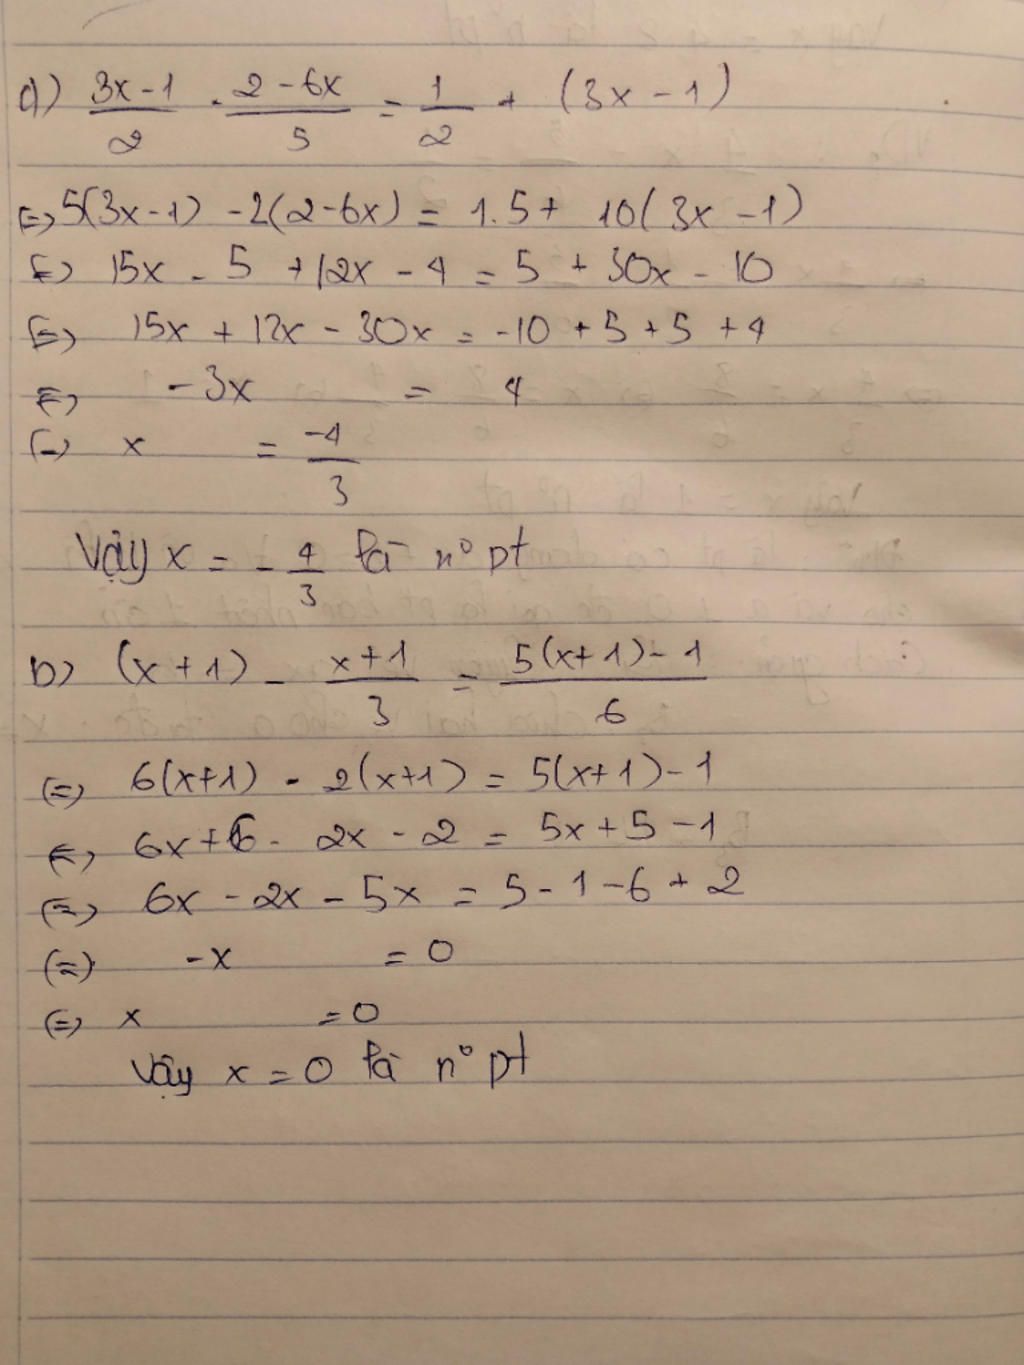 a) (3x-1)/2 - (2-6x)/5 = 1/2 + (3x-1)
(=) 5(3x-1) - 2(2-6x) = 1.5 + 10(3x-1)
(=) 15x - 5 + 12x - 4 = 5 + 30x - 10
(=) 15x + 12x - 30x = -10 + 5 + 5 + 4
(=) -3x = 4
(=) x = -4/3
Vậy x = -4/3 là n° pt
b) (x+1) - (x+1)/3 = (5(x+1)-1)/6
(=) 6(x+1) - 2(x+1) = 5(x+1)-1
(=) 6x+6 - 2x - 2 = 5x+5-1
(=) 6x - 2x - 5x = 5-1-6+2
(=) -x = 0
(=) x = 0
Vậy x = 0 là n° pt